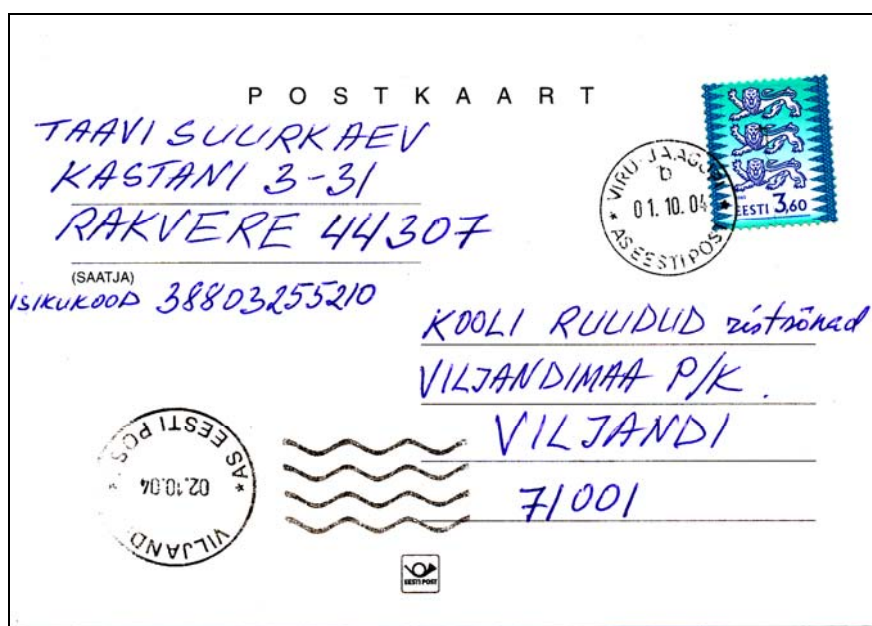 POSTKAART
TAAVI SUURKAEV
KASTANI 3-31
RAKVERE 44307
(SAATJA)
ISIKUKOOD 38803255210
VIRU-JAAGUPI
b
01.10.04
AS EESTI POST
EESTI 3,60
KOOLI RUUDUD ristsõnad
VILJANDIMAA P/K
VILJANDI
71001
AS EESTI POS
02.10.04
VILJAND
EESTI POST